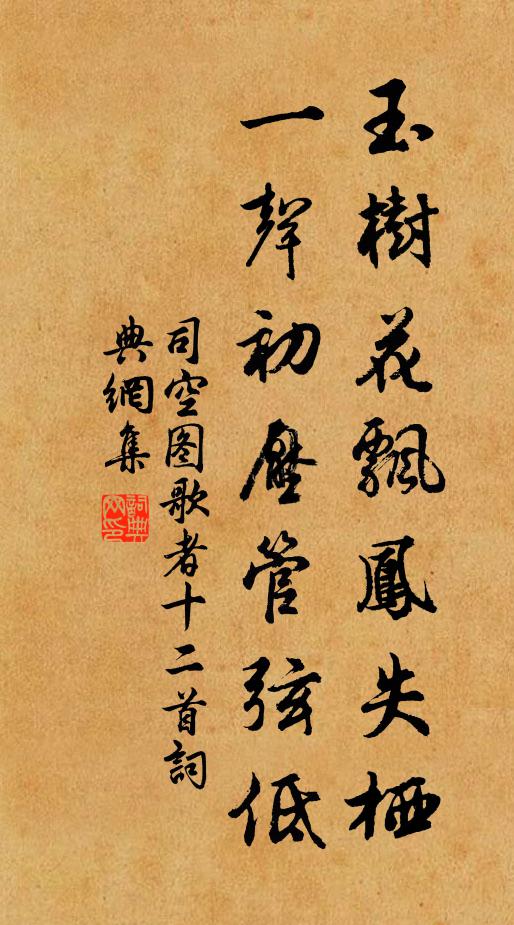 玉樹花飄鳳失栖
一聲初壓管弦低
司空图歌者十二首詞
典網集
詞典網印